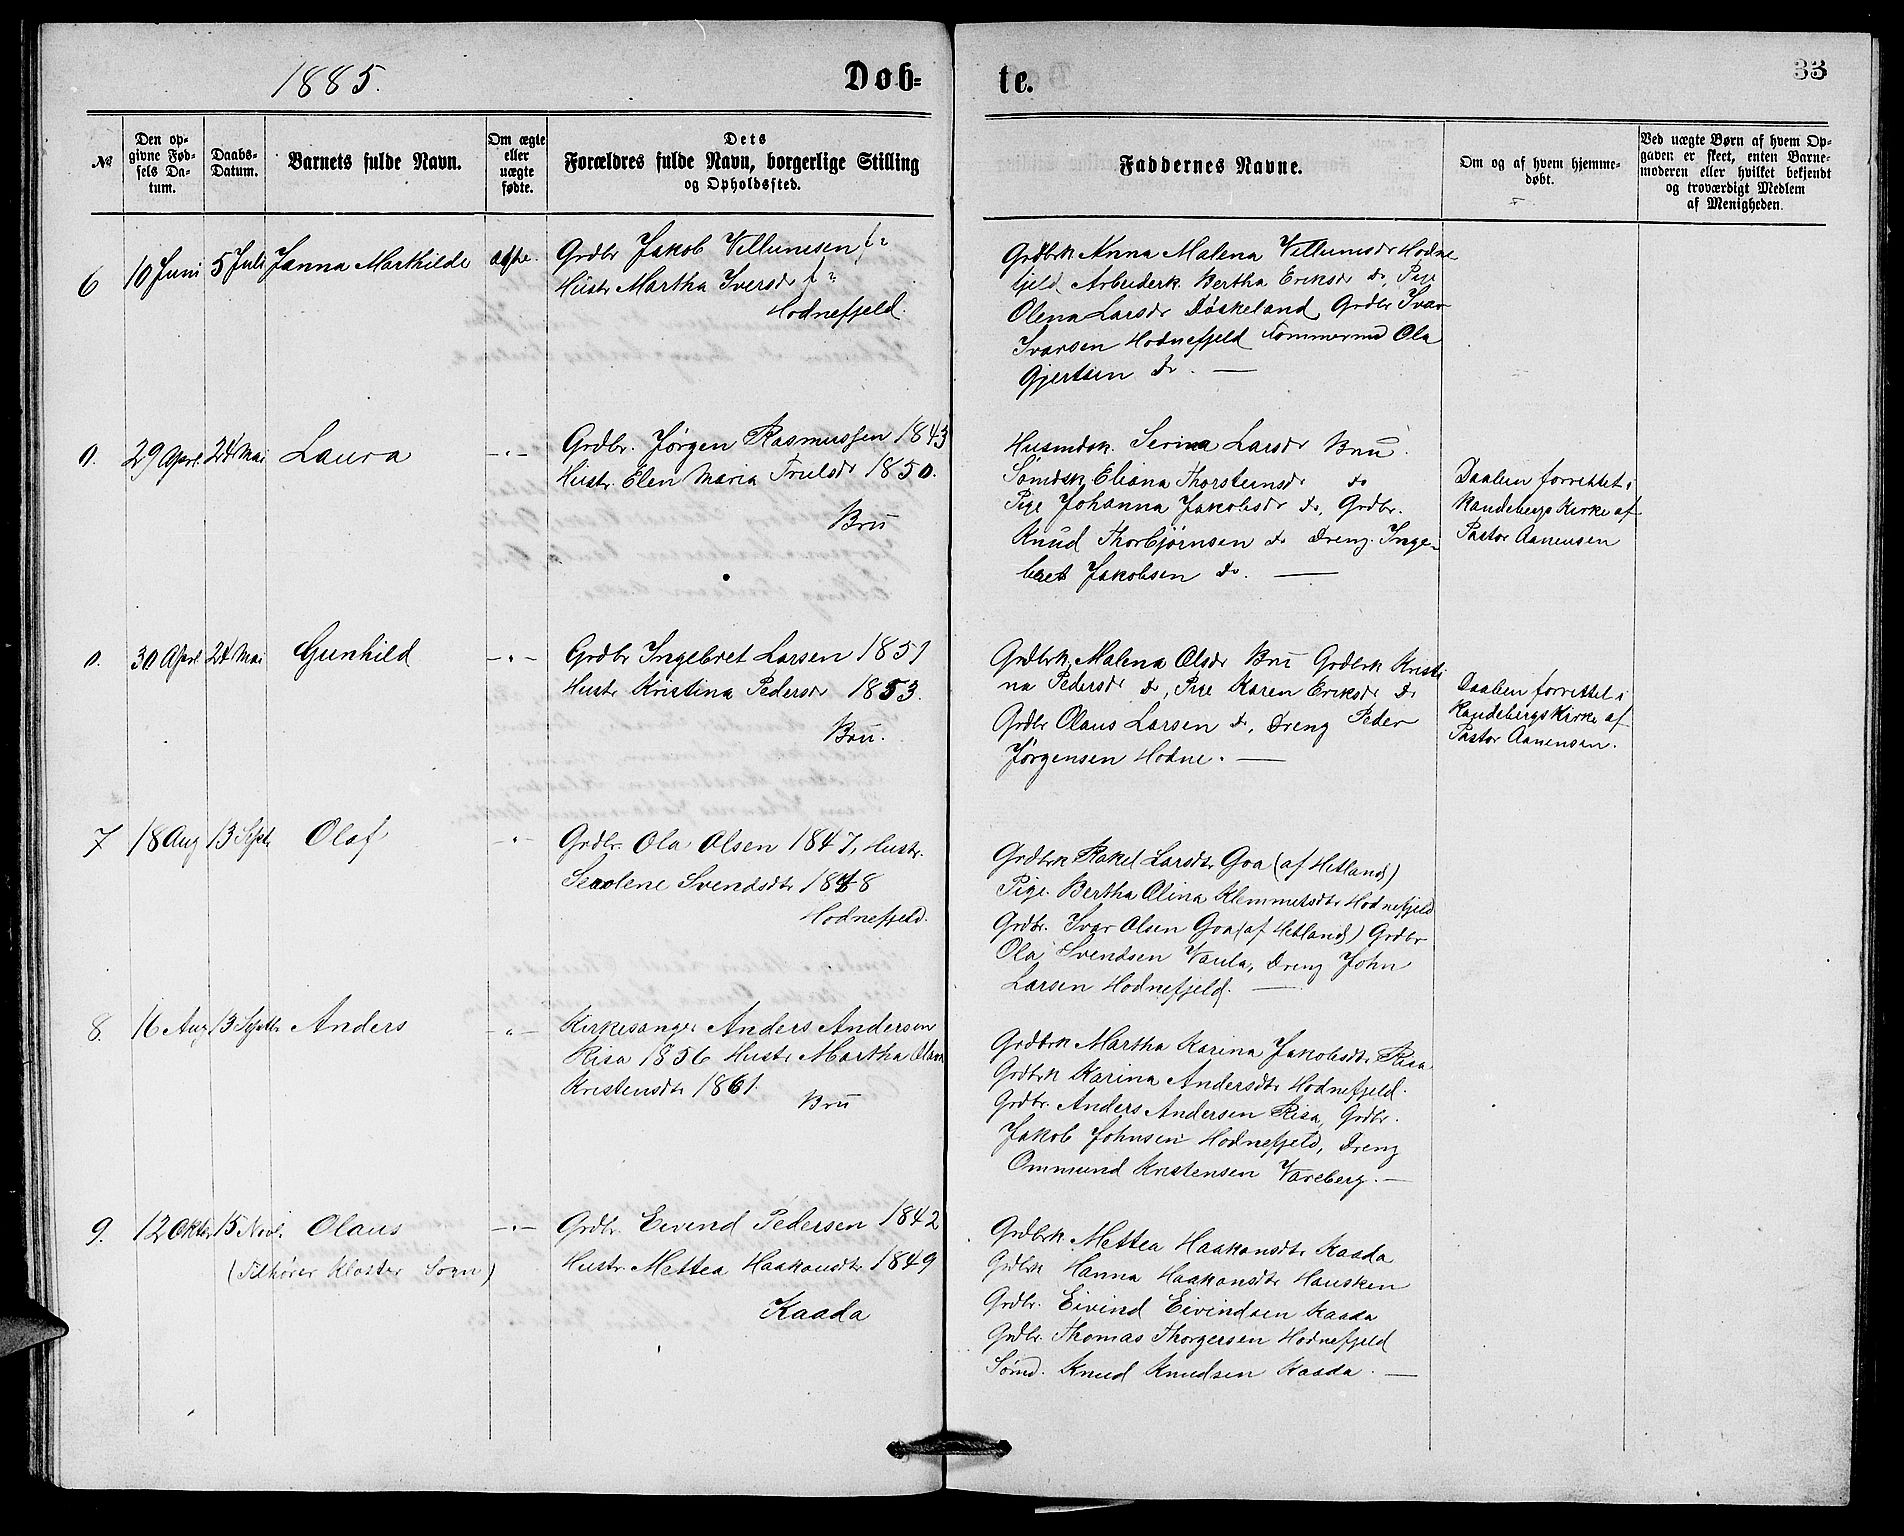 1885.
Døb-
te.
33
№
Den op-
givne Fød-
sels Da-
tum.
Daabs-
Datum.
Barnets fulde Navn.
Om ægte
eller
uægte
fødte.
Dets
Forældres fulde Navn, borgerlige Stilling
og Opholdssted.
Faddernes Navne.
Om og af hvem hjemme-
døbt.
Ved uægte Børn af hvem Op-
gaven er skeet, enten Barne-
moderen eller hvilket bekjendt
og troværdigt Medlem
af Menigheden.
6
10 Juni
5 Juli
Janna Marthilde
ægte.
Grdbr Jakob Villumsen
Hustr Martha Iversdr
Hodnefjeld.
Grdbrk Anna Malena Villumsdr Hodne
fjeld, Arbeiderk. Bertha Eriksdr do, Pige
Olena Larsdr Døskeland, Grdbr Ivar
Ivarsen Hodnefjeld Tømmermd Ola
Gjertsen do. —
0.
29 April
24 Mai
Laura
-"-
Grdbr. Jørgen Rasmussen 1843
Hustr. Elen Maria Trulsdr 1850.
Bru
Husmdsk. Serina Larsdr Bru.
Sømdsk Eliana Thorsteinsdr do
Pige Johanna Jakobsdr do, Grdbr.
Knud Thorbjørnsen do Dreng. Inge-
bret Jakobsen do. —
Daaben forrettet i
Randebergs Kirke af
Pastor Aanensen
0.
30 April
24 Mai
Gunhild
-"-
Grdbr Ingebret Larsen 1851
Hustr Kristina Pedersdr 1853.
Bru.
Grdbrk Malena Olsdr Bru Grdbrk Kristi
na Pedersdr do, Pige Karen Eriksdr do
Grdbr Olaus Larsen do, Dreng Peder
Jørgensen Hodne. —
Daaben forrettet i
Randebergs Kirke af
Pastor Aanensen.
7
18 Aug
13 Septr
Olaf
-"-
Grdbr. Ola Olsen 1847, Hustr.
Serolene Svendsdtr 1848
Hodnefjeld.
Grdbrk Rakel Larsdtr Goa (af Hetland)
Pige. Bertha Olina Klemmetsdtr Hodnefjeld
Grdbr. Ivar Olsen Goa (af Hetland) Grdbr
Ola Svendsen Vaula, Dreng John
Larsen Hodnefjeld. —
8.
16 Aug
13 Septbr
Anders
-"-
Kirkesanger Anders Andersen
Risa 1856 Hustr Martha
Kristensdtr 1861.
Bru
Grdbrk Martha Karina Jakobsdtr Risa
Grdbrk Karina Andersdtr Hodnefjeld.
Grdbr. Anders Andersen Risa, Grdbr.
Jakob Johnsen Hodnefjeld, Dreng
Ommund Kristensen Vareberg. —
9.
12 Oktbr
15 Novbr.
Olaus
(Tilhører Kloster Sogn)
-"-
Grdbr. Eivend Pedersen 1842
Hustr. Mettea Haakonsdtr 1849
Kaada
Grdbrk Mettea Haakonsdtr Kaada
Grdbrk Hanna Haakonsdtr Hausken
Grdbr. Eivind Eivindsen Kaada
Grdbr. Thomas Thorgersen Hodnefjeld
Sømd. Knud Knudsen Kaada. —